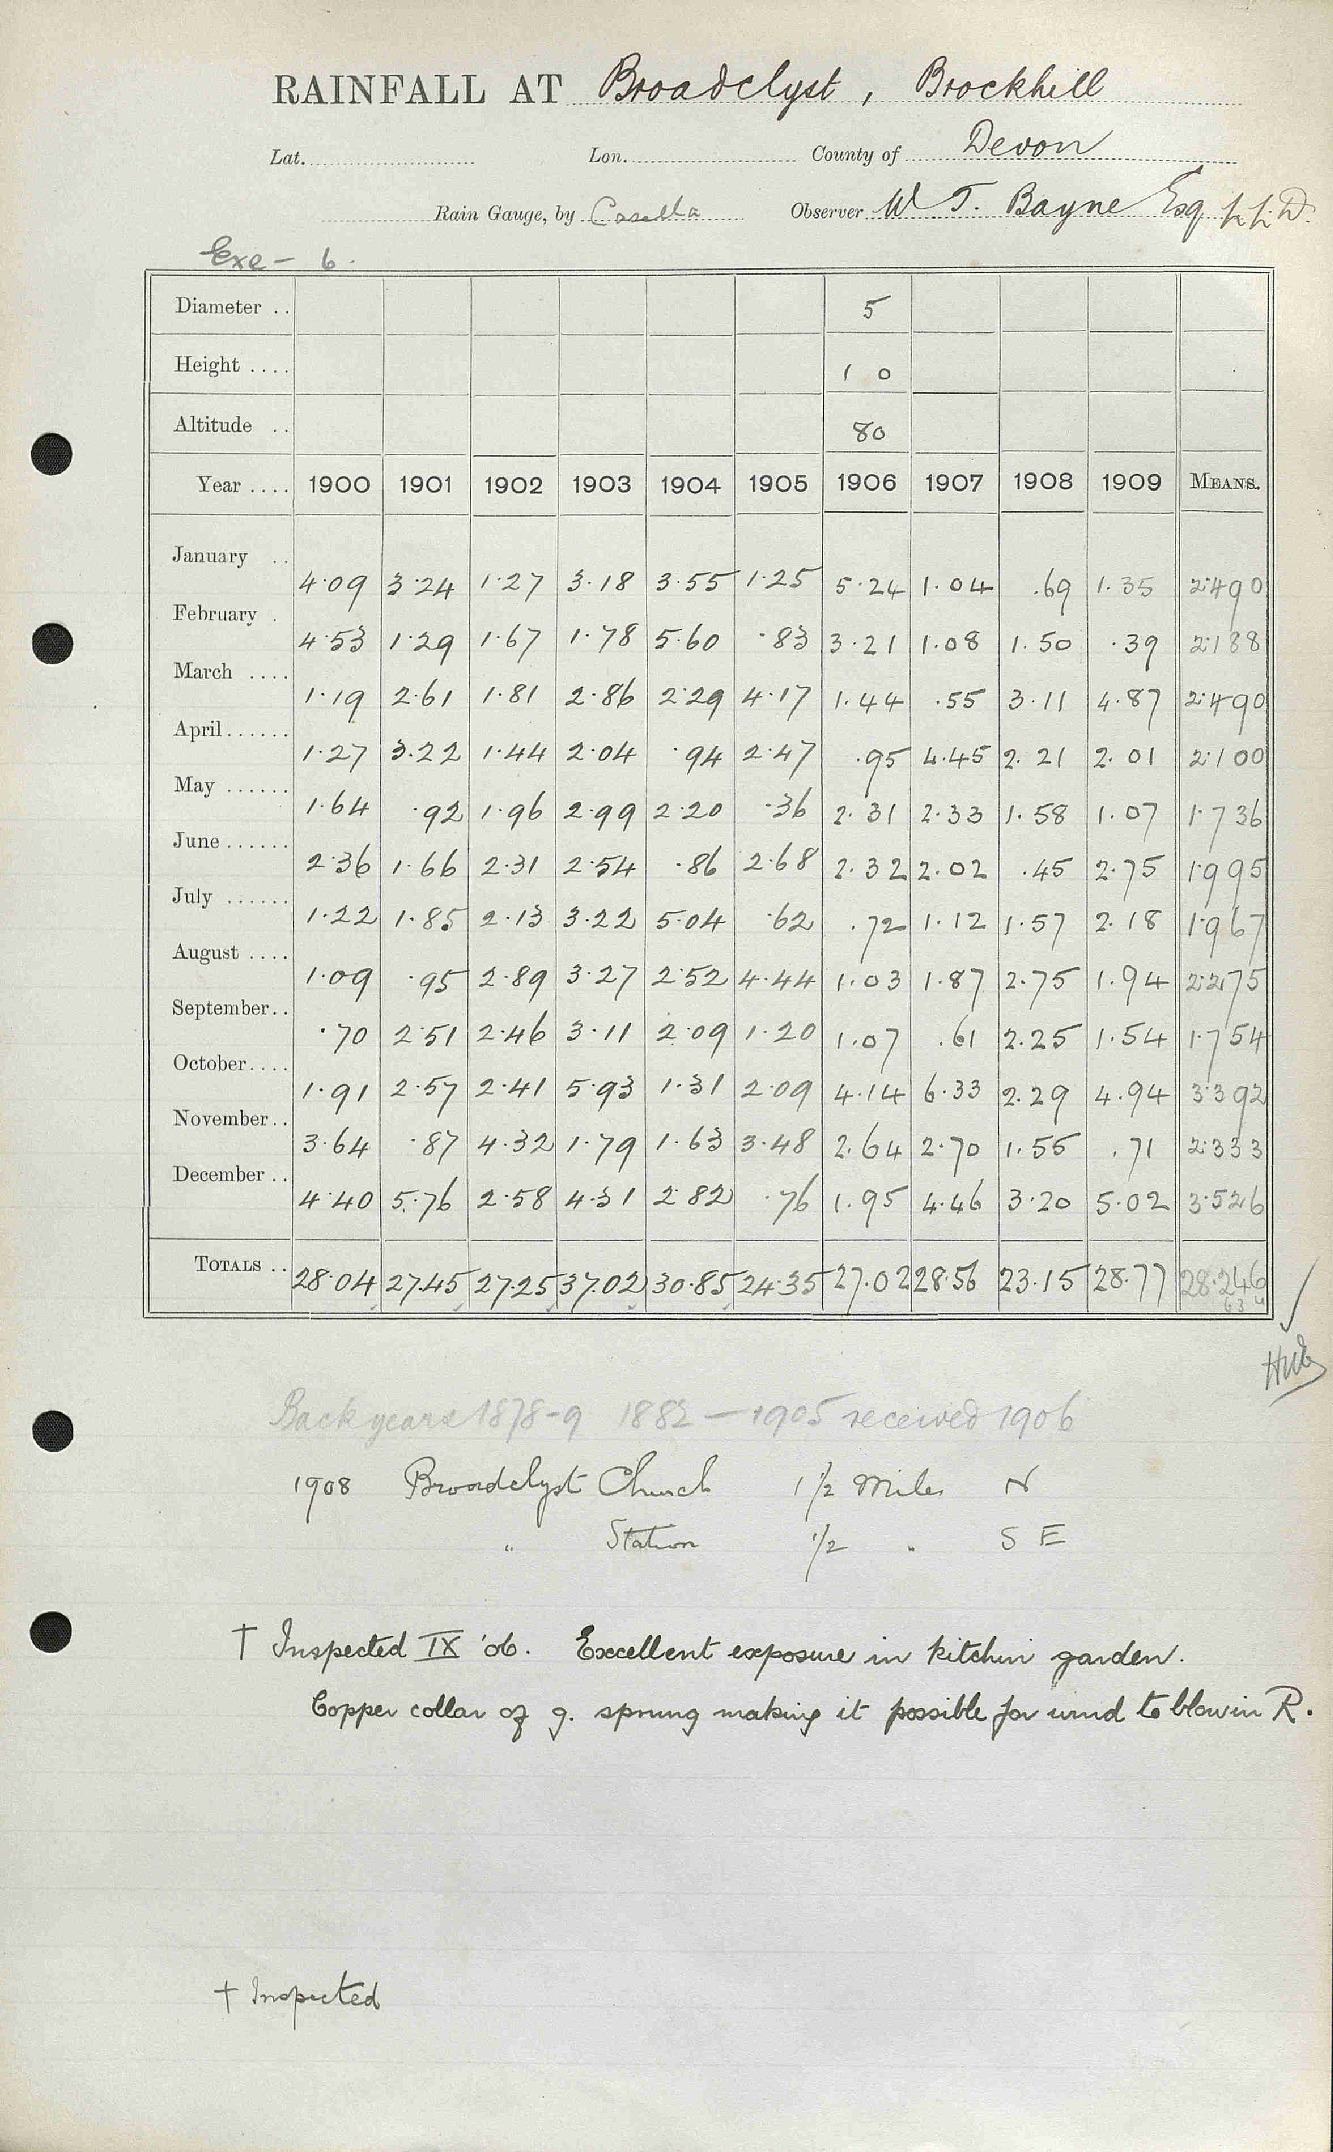 RAINFALL AT Broadclyst, Brockhill
Lat. Lon. County of Devon
Rain Gauge, by Casella Observer W T. Bayne Esq LL.D.
Exe - 6.
Diameter .. 5
Height .... 1 0
Altitude .. 80
Year .... 1900 1901 1902 1903 1904 1905 1906 1907 1908 1909 MEANS.
January .. 4.09 3.24 1.27 3.18 3.55 1.25 5.24 1.04 .69 1.35 2.490
February . 4.53 1.29 1.67 1.78 5.60 .83 3.21 1.08 1.50 .39 2.188
March .... 1.19 2.61 1.81 2.86 2.29 4.17 1.44 .55 3.11 4.87 2.490
April...... 1.27 3.22 1.44 2.04 .94 2.47 .95 4.45 2.21 2.01 2.100
May ...... 1.64 .92 1.96 2.99 2.20 .36 2.31 2.33 1.58 1.07 1.736
June...... 2.36 1.66 2.31 2.54 .86 2.68 2.32 2.02 .45 2.75 1.995
July ...... 1.22 1.85 2.13 3.22 5.04 .62 .72 1.12 1.57 2.18 1.967
August .... 1.09 .95 2.89 3.27 2.52 4.44 1.03 1.87 2.75 1.94 2.275
September.. .70 2.51 2.46 3.11 2.09 1.20 1.07 .61 2.25 1.54 1.754
October.... 1.91 2.57 2.41 5.93 1.31 2.09 4.14 6.33 2.29 4.94 3.392
November.. 3.64 .87 4.32 1.79 1.63 3.48 2.64 2.70 1.55 .71 2.333
December .. 4.40 5.76 2.58 4.31 2.82 .76 1.95 4.46 3.20 5.02 3.526
TOTALS .. 28.04 27.45 27.25 37.02 30.85 24.35 27.02 28.56 23.15 28.77 28.246
Back years 1878-9 1882 — 1905 received 1906
1908 Broadclyst Church 1 1/2 Miles N
" Station 1/2 " S E
† Inspected IX '06. Excellent exposure in kitchin garden.
Copper collar of g. sprung making it possible for wind to blow in R.
† Inspected